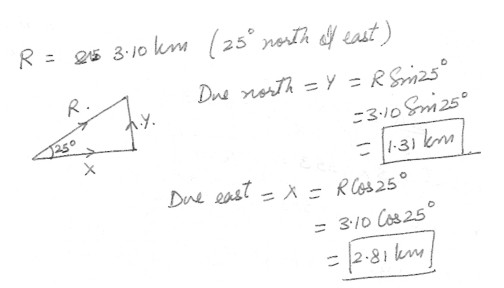 R = 3.10 km (25° north of east)
Due north = Y = R Sin25°
= 3.10 Sin 25°
= 1.31 km
R.
Y.
25°
X
Due east = X = R Cos 25°
= 3.10 Cos 25°
= 2.81 km